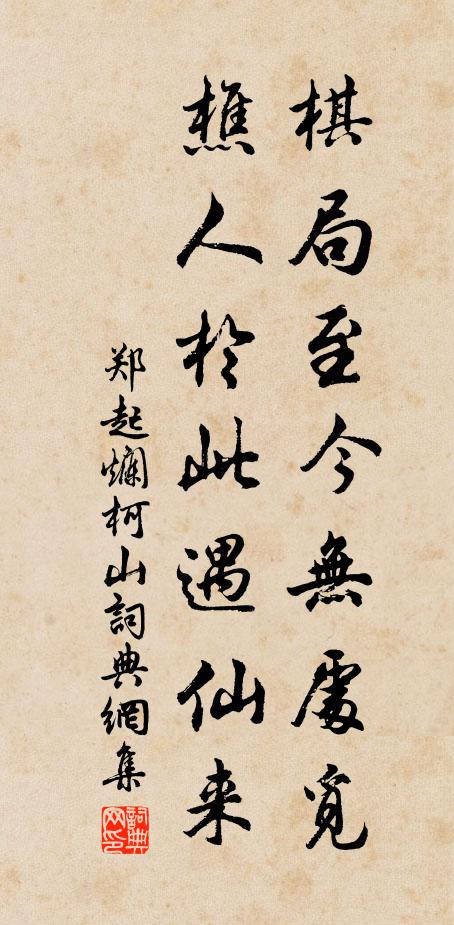 棋局至今無處覓
樵人於此遇仙来
郑起爛柯山詞典網集
詞典网印